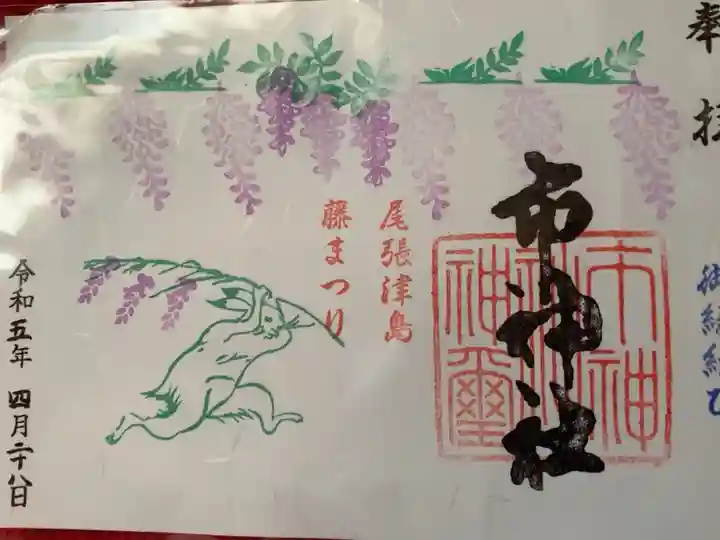 奉拝
御縁結び
市神社
市神社神璽
尾張津島
藤まつり
令和五年 四月二十八日